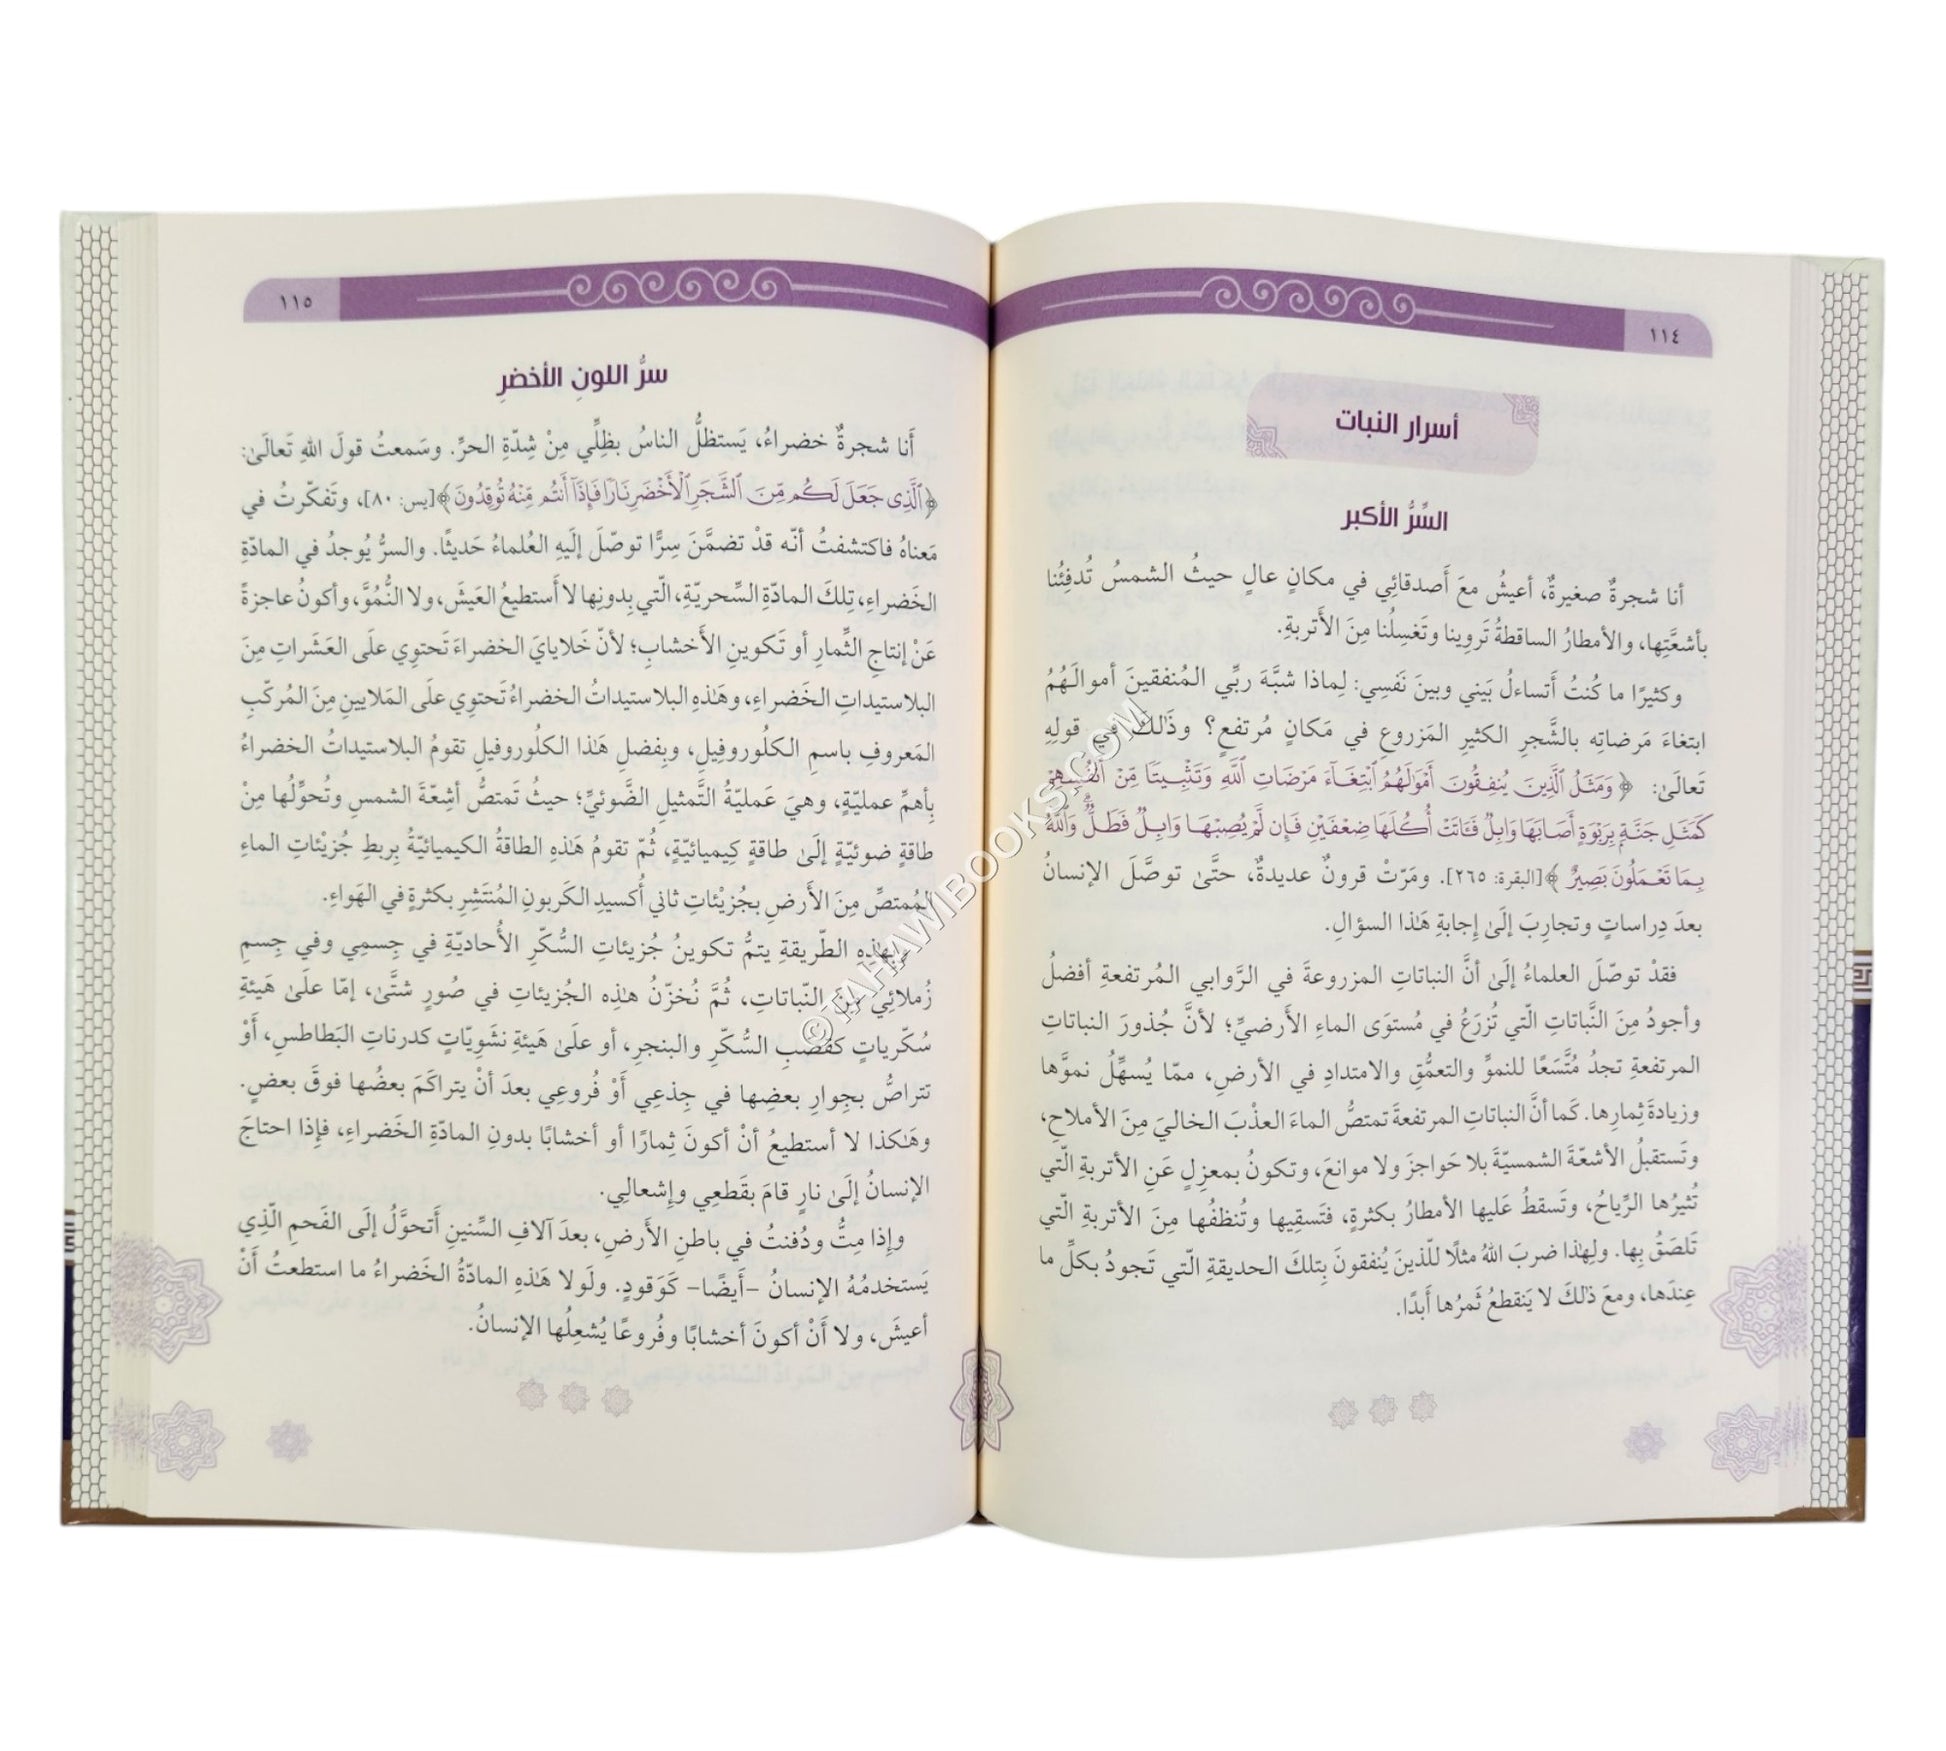 ١١٤
أسرار النبات
السِّرُّ الأكبر
أنا شجرةٌ صغيرةٌ، أعيشُ معَ أَصدقائِي في مكانٍ عالٍ حيثُ الشمسُ تُدفِئُنا
بأشعَّتِها، والأمطارُ الساقطةُ تَروِينا وتَغسِلُنا مِنَ الأَتربةِ.
وكثيرًا ما كُنتُ أَتساءلُ بَيني وبينَ نَفسِي: لِماذا شبَّهَ ربِّي المُنفقينَ أموالَهُمُ
ابتغاءَ مَرضاتِه بالشَّجرِ الكثيرِ المَزروعِ في مَكانٍ مُرتفعٍ؟ وذَٰلكَ في قولِهِ
تَعالَىٰ: ﴿وَمَثَلُ ٱلَّذِينَ يُنفِقُونَ أَمۡوَٰلَهُمُ ٱبۡتِغَآءَ مَرۡضَاتِ ٱللَّهِ وَتَثۡبِيتٗا مِّنۡ أَنفُسِهِمۡ
كَمَثَلِ جَنَّةِۭ بِرَبۡوَةٍ أَصَابَهَا وَابِلٞ فَـَٔاتَتۡ أُكُلَهَا ضِعۡفَيۡنِ فَإِن لَّمۡ يُصِبۡهَا وَابِلٞ فَطَلّٞۗ وَٱللَّهُ
بِمَا تَعۡمَلُونَ بَصِيرٌ﴾ [البقرة: ٢٦٥]. ومَرّت قرونٌ عديدةٌ، حتَّىٰ توصَّلَ الإنسانُ
بعدَ دِراساتٍ وتجارِبَ إلَىٰ إجابةِ هَـٰذا السؤالِ.
فقدْ توصّلَ العلماءُ إلَىٰ أنَّ النباتاتِ المزروعةَ في الرَّوابي المُرتفعةِ أفضلُ
وأجودُ مِنَ النَّباتاتِ الّتي تُزرَعُ في مُستوَى الماءِ الأَرضيِّ؛ لأنَّ جُذورَ النباتاتِ
المرتفعةِ تجدُ مُتَّسَعًا للنموِّ والتعمُّقِ والامتدادِ في الأرضِ، ممّا يُسهِّلُ نموَّها
وزيادةَ ثِمارِها. كَما أنَّ النباتاتِ المرتفعةَ تمتصُّ الماءَ العذْبَ الخاليَ مِنَ الأملاحِ،
وتَستقبلُ الأشعّةَ الشمسيّةَ بلا حَواجزَ ولا موانعَ، وتكونُ بمعزِلٍ عَنِ الأتربةِ الّتي
تُثيرُها الرِّياحُ، وتَسقطُ عَليها الأمطارُ بكثرةٍ، فتَسقِيها وتُنظفُها مِنَ الأتربةِ الّتي
تَلصَقُ بِها. ولِهَـٰذا ضربَ اللهُ مثلًا للّذينَ يُنفقونَ بِتلكَ الحديقةِ الّتي تَجودُ بكلِّ ما
عِندَها، ومعَ ذَٰلكَ لا يَنقطعُ ثَمرُها أَبدًا.
١١٥
سرُّ اللونِ الأخضرِ
أَنا شجرةٌ خضراءُ، يَستظلُّ الناسُ بظِلِّي مِنْ شِدّةِ الحرِّ. وسَمعتُ قولَ اللهِ تَعالَىٰ:
﴿ٱلَّذِي جَعَلَ لَكُم مِّنَ ٱلشَّجَرِ ٱلۡأَخۡضَرِ نَارٗا فَإِذَآ أَنتُم مِّنۡهُ تُوقِدُونَ﴾ [يس: ٨٠]، وتَفكّرتُ في
مَعناهُ فاكتشفتُ أنّه قدْ تضمَّنَ سِرًّا توصّلَ إليهِ العُلماءُ حَديثًا. والسرُّ يُوجدُ في المادّةِ
الخَضراءِ، تِلكَ المادّةِ السِّحريّةِ، الّتي بِدونِها لا أَستطيعُ العَيشَ، ولا النُّمُوَّ، وأكونُ عاجزةً
عَنْ إنتاجِ الثِّمارِ أو تَكوينِ الأَخشابِ؛ لأنّ خَلايايَ الخضراءَ تَحتوِي علَى العَشَراتِ مِنَ
البلاستيداتِ الخَضراءِ، وهَـٰذهِ البلاستيداتُ الخضراءُ تَحتوِي علَى المَلايينِ مِنَ المُركّبِ
المَعروفِ باسمِ الكلُوروفِيلِ، وبِفضلِ هَـٰذا الكلُوروفيلِ تقومُ البلاستيداتُ الخضراءُ
بِأهمِّ عمليّةٍ، وهيَ عَمليّةُ التَّمثيلِ الضَّوئيِّ؛ حيثُ تَمتصُّ أشِعّةَ الشمسِ وتُحوِّلُها مِنْ
طاقةٍ ضوئيّةٍ إلَىٰ طاقةٍ كِيميائيّةٍ، ثُمّ تقومُ هَـٰذهِ الطاقةُ الكيميائيّةُ بِربطِ جُزيْئاتِ الماءِ
المُمتصِّ مِنَ الأَرضِ بجُزيْئاتِ ثاني أُكسيدِ الكَربونِ المُنتَشِرِ بكثرةٍ في الهَواءِ.
وبهَـٰذِهِ الطّريقةِ يتمُّ تكوينُ جُزيئاتِ السُّكّرِ الأُحاديّةِ في جِسمِي وفي جِسمِ
زُملائِي مِنَ النّباتاتِ، ثُمَّ نُخزّنُ هَـٰذِه الجُزيئاتِ في صُورٍ شتَّىٰ، إمّا علَىٰ هَيئةِ
سُكّرياتٍ كقَصَبِ السُّكّرِ والبنجرِ، أو علَىٰ هَيئةِ نشَوِيّاتٍ كدرناتِ البَطاطسِ، أَوْ
تتراصُّ بجِوارِ بعضِها في جِذعِي أَوْ فُروعِي بعدَ أنْ يتراكَمَ بعضُها فوقَ بعضٍ.
وهَـٰكذا لا أستطيعُ أنْ أكونَ ثِمارًا أو أخشابًا بدونِ المادّةِ الخَضراءِ، فإذا احتاجَ
الإنسانُ إلَىٰ نارٍ قامَ بقَطعِي وإشعالِي.
وإذا مِتُّ ودُفنتُ في باطنِ الأَرضِ، بعدَ آلافِ السِّنينِ أتحوَّلُ إلَى الفَحمِ الّذِي
يَستخدمُهُ الإنسانُ -أَيضًا- كَوَقودٍ. ولَولا هَـٰذهِ المادّةُ الخَضراءُ ما استطعتُ أَنْ
أعيشَ، ولا أَنْ أكونَ أخشابًا وفُروعًا يُشعِلُها الإنسانُ.
©TAHAWIBOOKS.COM